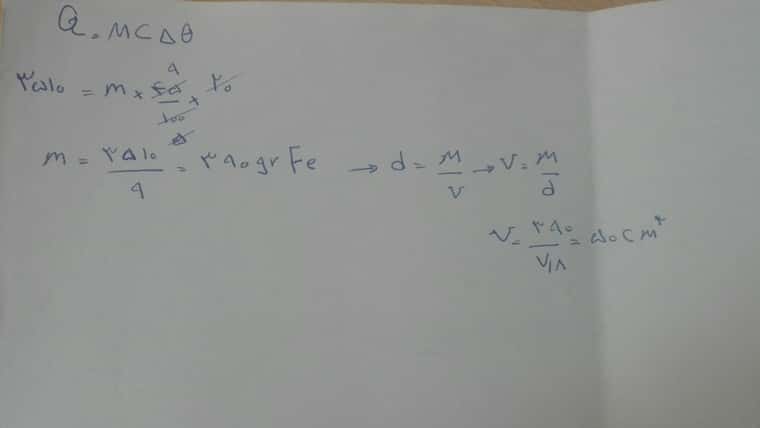 Q = MCΔθ
۳۵۱۰ = m × ۴۵/۱۰۰ × ۲۰
m = ۳۵۱۰/۹ = ۳۹۰ gr Fe → d = M/V → V = M/d
V = ۳۹۰/۷٫۸ = ۵۰ cm³